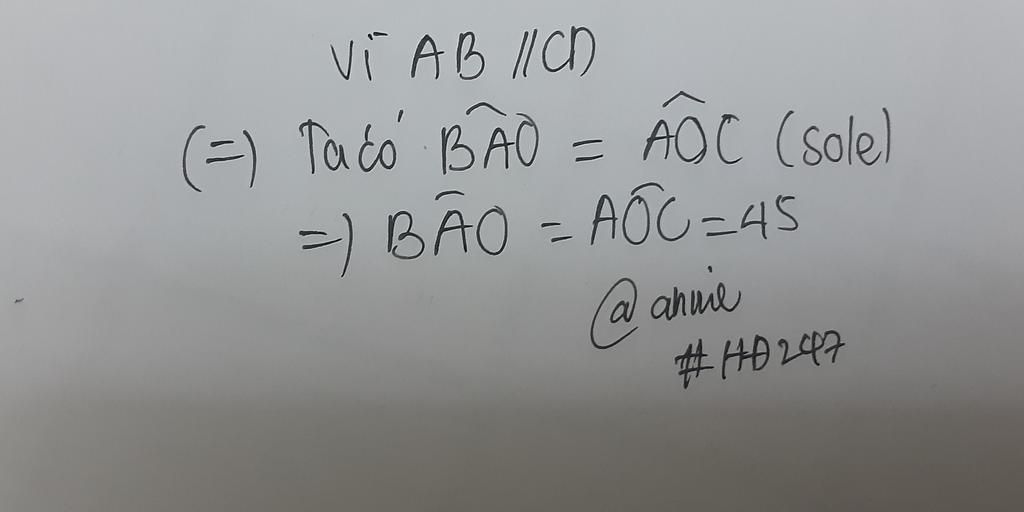 Vì AB // CD
(=) Ta có BÂO = AÔC (sole)
=) BÂO = AÔC = 45
@annie
#HĐ247